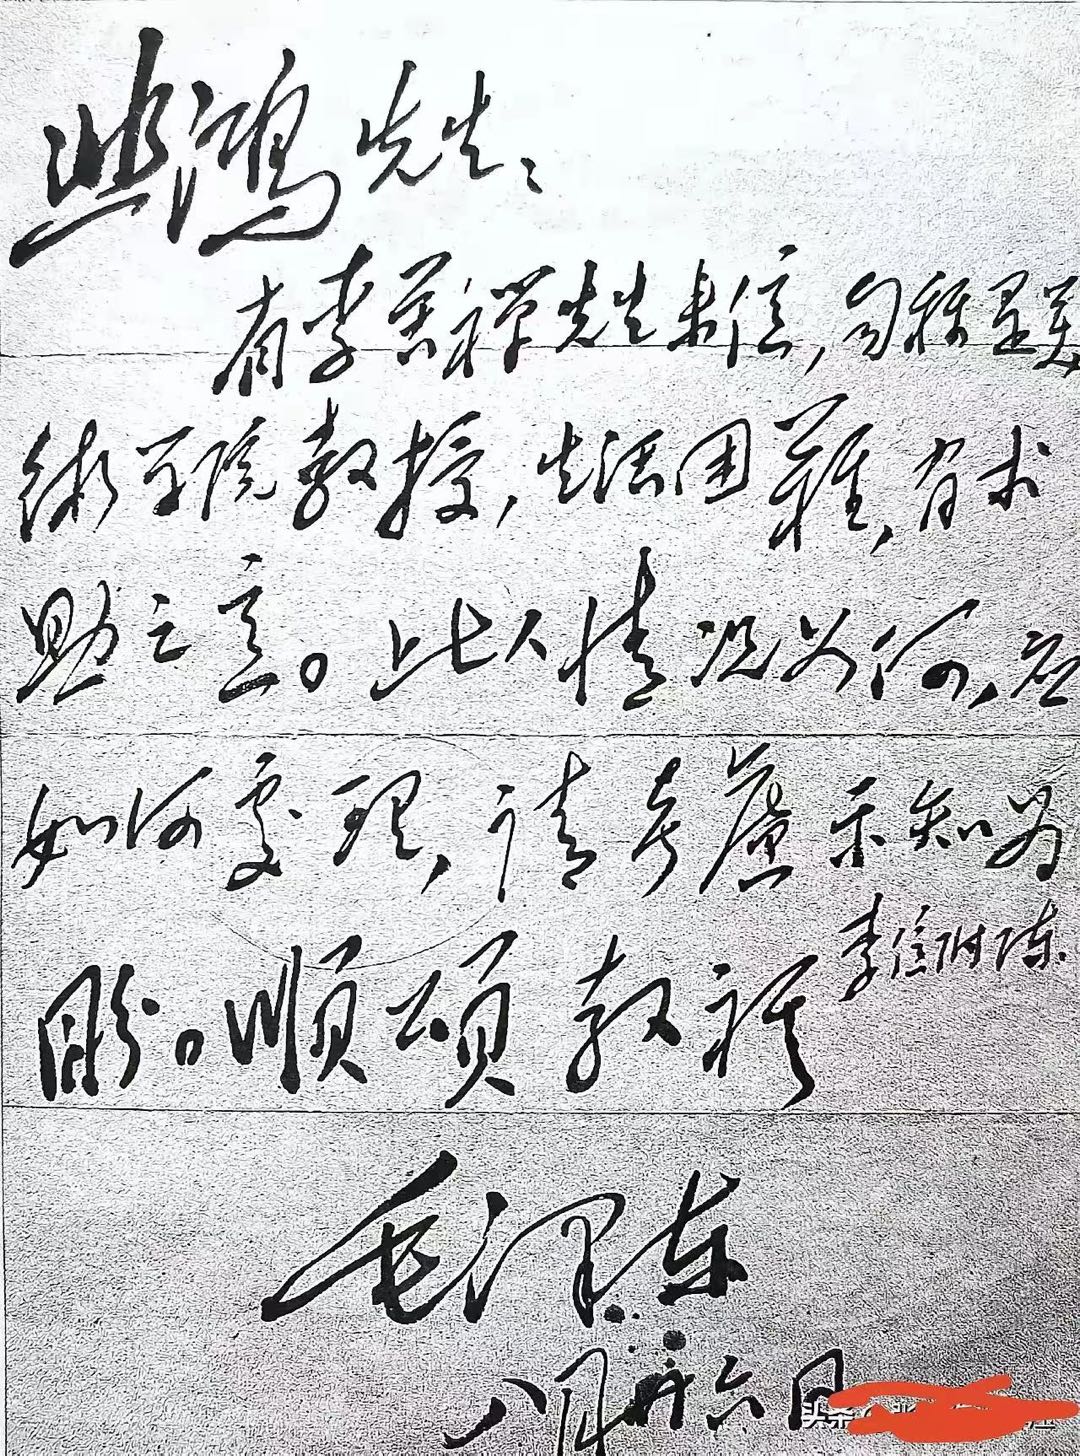 悲鸿先生：
有李苦禅先生来信，自称是美
術学院教授，生活困難，有求
助之意。此人情况如何，应
如何處理，请考慮示知为
盼。順頌教祺
李信附陈
毛泽东
八月廿六日
头条